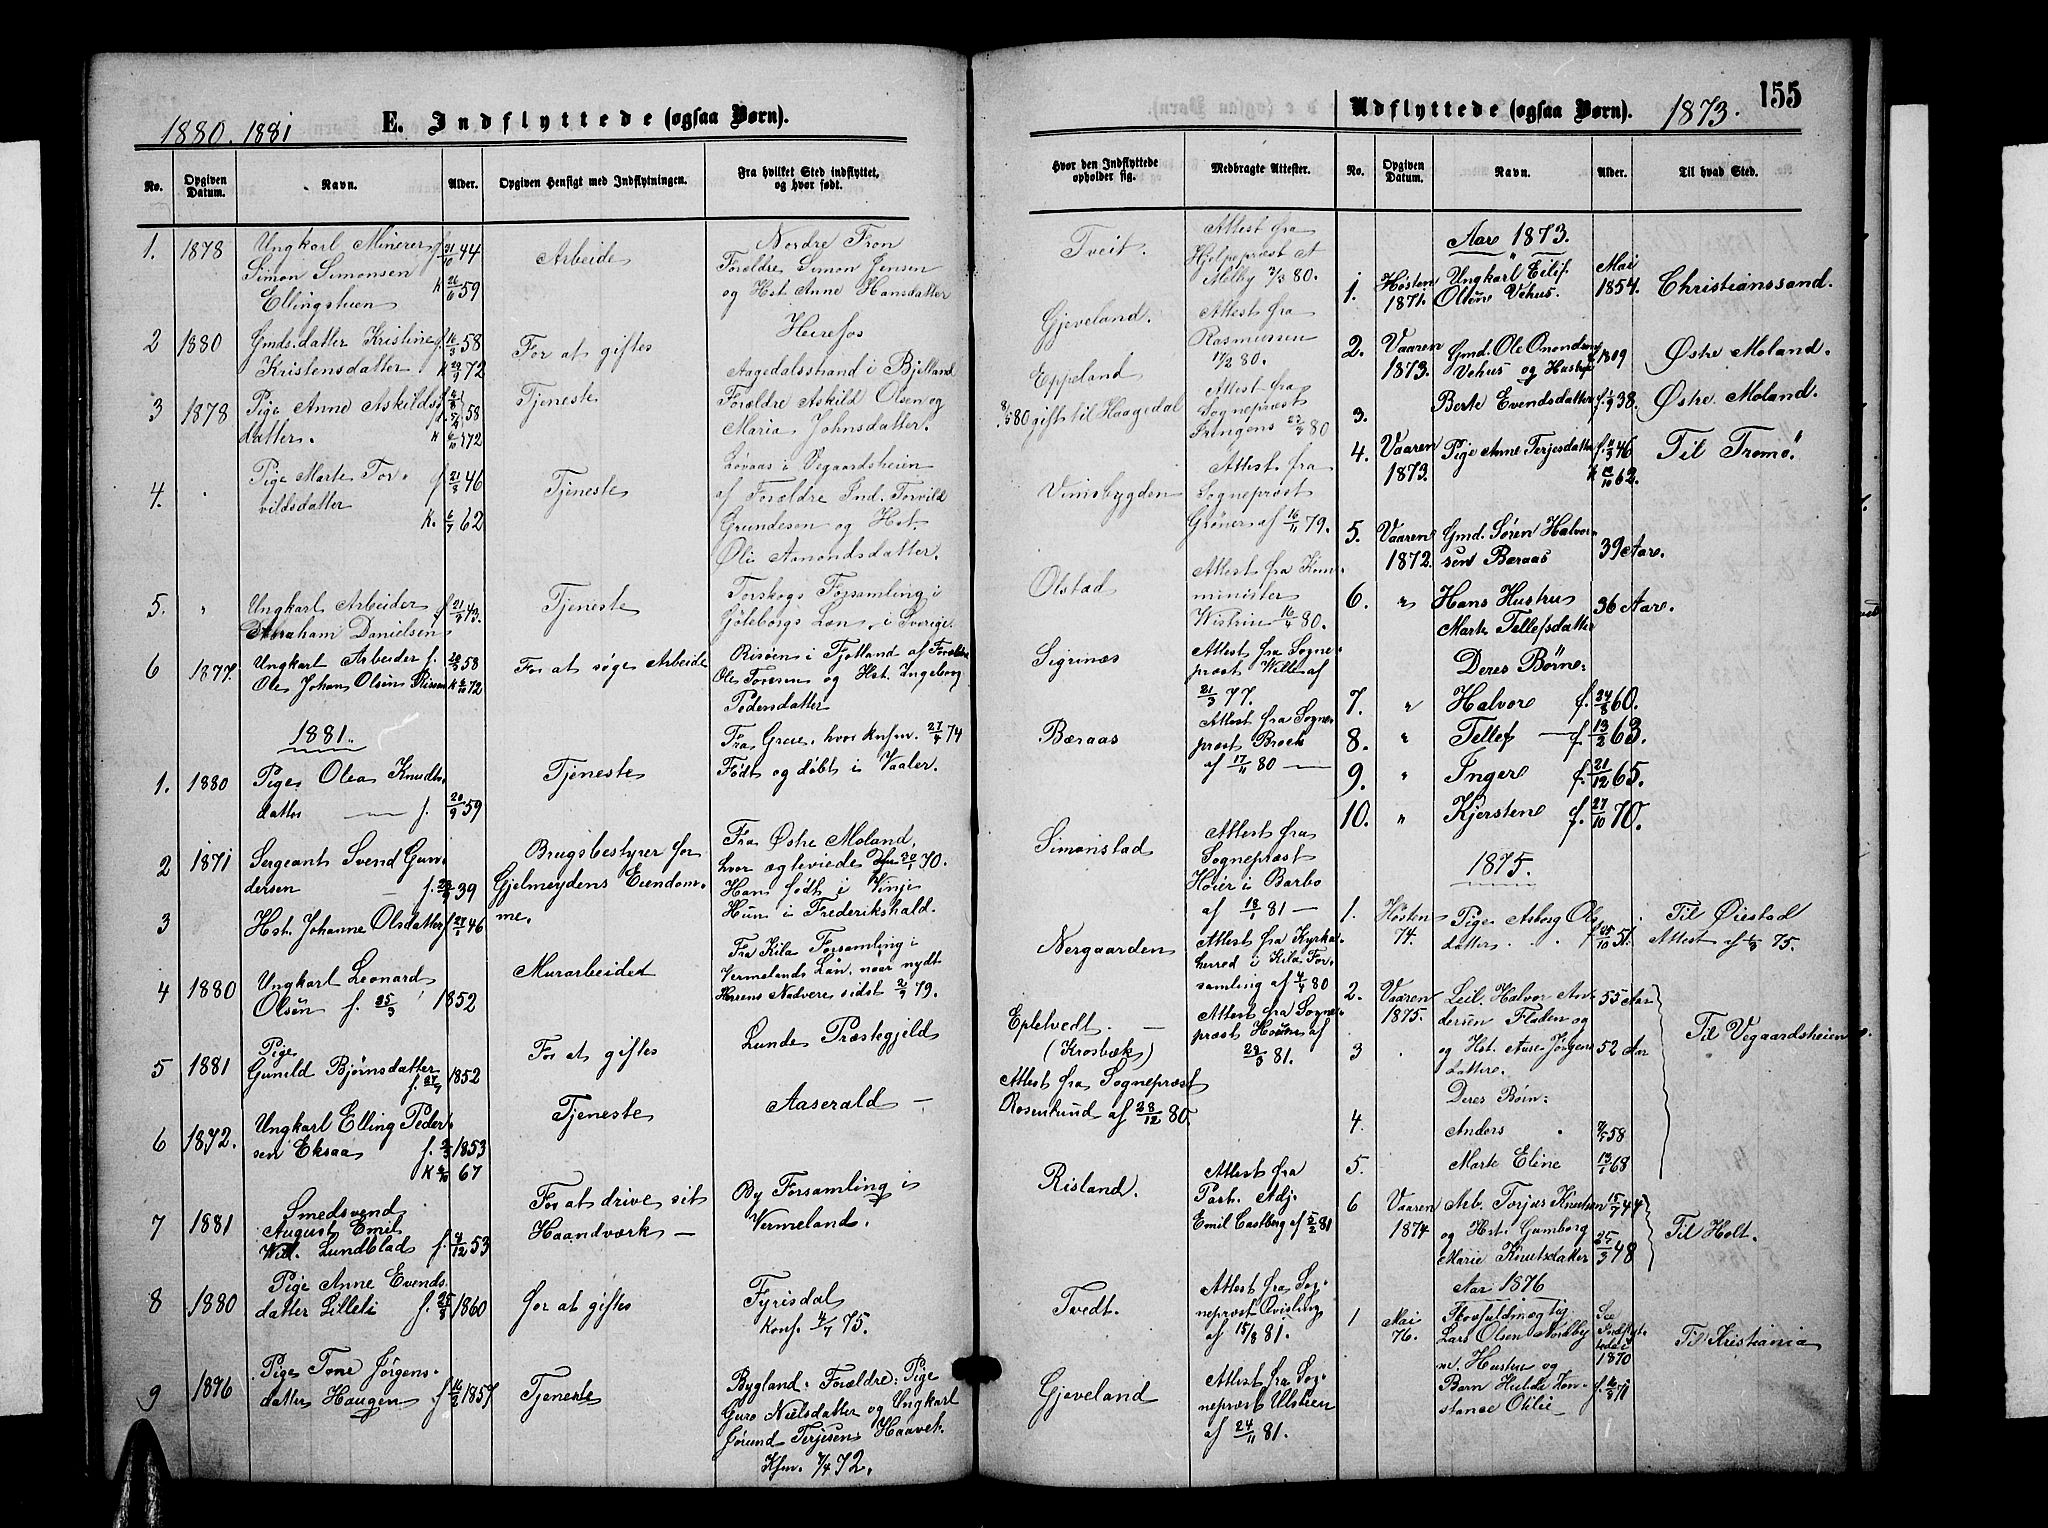 155
1880. 1881
E. Indflyttede (ogsaa Børn).
No.
Opgiven Datum.
Navn.
Alder.
Opgiven Hensigt med Indflytningen.
Fra hvilket Sted indflyttet, og hvor født.
1. 1878 Ungkarl Minerer f 21/10 44 Arbeide Nordre Fron
Simon Simonsen Forældre Simon Jensen
Ellingstuen K 59 og Hst. Anne Hansdatter
2 1880 Gmds.datter Kristine f. 16/3 58 For at giftes Heirefos
Kristensdatter K 29/9 72 Aagedalsstrand i Bjelland
3 1878 Pige Anne Askilds- 58 Tjeneste Forældre Askild Olsen og
datter. K 6/10 72 Maria Johnsdatter.
4. Pige Marte Tor- f 21/3 46 Tjeneste Løvaas i Vegaardsheien
vildsdatter K. 6/7 62 af Forældre Ind. Torvild
Grundesen og Hst.
Oli Aamondsdatter.
5. " Ungkarl Arbeider f 43. Tjeneste Torskogs Forsamling i
Abraham Danielsen Göteborgs Læn, i Sverige
6 1877. Ungkarl Arbeider f. 58 For at søge Arbeide Risøen i Fjotland af Forældre
Ole Johan Olsen Risøen K 72 Ole Toresen og Hst. Ingeborg
Pedersdatter
1881.
1. 1880 Pige Olea Knuds- Tjeneste Fra Greie, hvor knfm. 27/4 74
datter f. 20/9 59 Født og døbt i Vaaler.
2 1871 Sergeant Svend Gun- Brugsbestyrer for Fra Østre Moland,
dersen f. 39 Gjelmeydens Eiendom- hvor ægteviede 20/1 70.
3 Hst. Johanne Olsdatter f 27/1 46 me. Han født i Vinje
Hun i Frederikshald.
4 1880 Ungkarl Leonard Murarbeide Fra Kila Forsamling i
Olsen f. 25/3 1852 Vermelands Län, naar nydt
Herrens Nadvere sidst 2/9 79.
5 1881 Pige For at giftes Lunde Præstegjeld
Gunild Bjørnsdatter f. 27/9 1852
6 1872. Ungkarl Elling Peder- Tjeneste Aaserald —
sen Eksaa f. 1853
K 67
7 1881 Smedsvend For at drive sit By Forsamling i
August Emil Haandværk — Vermeland.
Wilh. Lundblad f. 4/12 53
8 1880 Pige Anne Evends- for at giftes Fyrisdal
datter Lilleli f. 25/3 1860 Konf. 4/7 75.
9 1876 Pige Tone Jørgens- Tjeneste Bygland. Forældre: Pige
datter Haugen f 16/2 1857 Guro Nielsdatter og Ungkarl
Jørund Terjesen Haavek.
Kfm. 7/4 72.
Udflyttede (ogsaa Børn). 1873.
Hvor den Indflyttede opholder sig.
Medbragte Attester.
No.
Opgiven Datum.
Navn.
Alder.
Til hvad Sted.
Tveit. Attest fra
Hjelpepræst A
Melby 2/3 80.
Gjeveland. Attest fra
Rasmussen
11/2 80.
Eppeland Attest fra
8/5 80 gift til Haagedal Sognepræst
Fringens 23/3 80
Vimisbygden Attest fra
Sognepræst
Grøner af 16/11 79.
Olstad Attest fra Kom-
minister
Wistrin 16/4 80.
Sigrinæs Attest fra Sogne-
præst Wille af
21/3 77.
Bæraas Attest fra Sogne-
præst Broch
af 17/11 80 —
Simonstad Attest fra
Sognepræst
Høier i Barbo
af 18/1 81 —
Nergaarden Attest fra Kyrka-
herred i Kila For-
samling af 4/4 80
Epletvedt. — Attest fra Sogne-
(Krosbæk) præst Houen af
29/3 81.
Attest fra Sognepræst
Rosenlund af 28/12 80.
Risland. Attest fra
Past. Adj.
Emil Castberg af 5/2 81
Tvedt. Attest fra Sog-
nepræst Qvisling
af 15/8 81.
Gjeveland Attest fra Sog-
nepræst Ulstein
af 24/11 81.
Aar 1873.
1. Høsten Ungkarl Eilif Mai Christianssand.
1871. Olsen Vehus. 1854.
2. Vaaren Gmd. Ole Omondsen 1809 Østre Moland.
1873. Vehus og Hustru
3. Berte Evensdatter f. 1/9 38. Østre Moland.
4. Vaaren Pige Anne Terjesdatter f. 46 Til Tromø.
1873. K 62.
5. Vaaren Gmd. Søren Halvor- 39 Aar.
1872. sen Bæraas
6. " Hans Hustru 36 Aar.
Marte Tellefsdatter
Deres Børn:
7. " Halvor f. 24/8 60.
8. " Tellef — f. 13/2 63.
9. " Inger f. 21/12 65.
10. " Kjersten f. 27/10 70.
1875.
1. Høsten Pige Asborg Ols- Til Øiestad
74. datter f. 25/10 51. Attest af 75.
2. Vaaren Leil. Halvor An- 55 Aar
1875. dersen Fladen og
3 og Hst. Aase Jørgens- 52 Aar Til Vegaardsheien.
datter.
Deres Børn:
4. Anders 58
5. Marte Eline 13/1 68
6 Vaaren Arb. Torjus Knutsen 15/7 44
1874 og Hst. Gunborg Til Holt.
Marie Knutsdatter 25/3 48
Aar 1876
1 Mai Skovfuldmægtig Se
76. Lars Olsen Nordby Indflyt-
m. Hustru og tede i 1870 Til Kristiania
Barn Hulda Kon- f. 71
stance Otilie